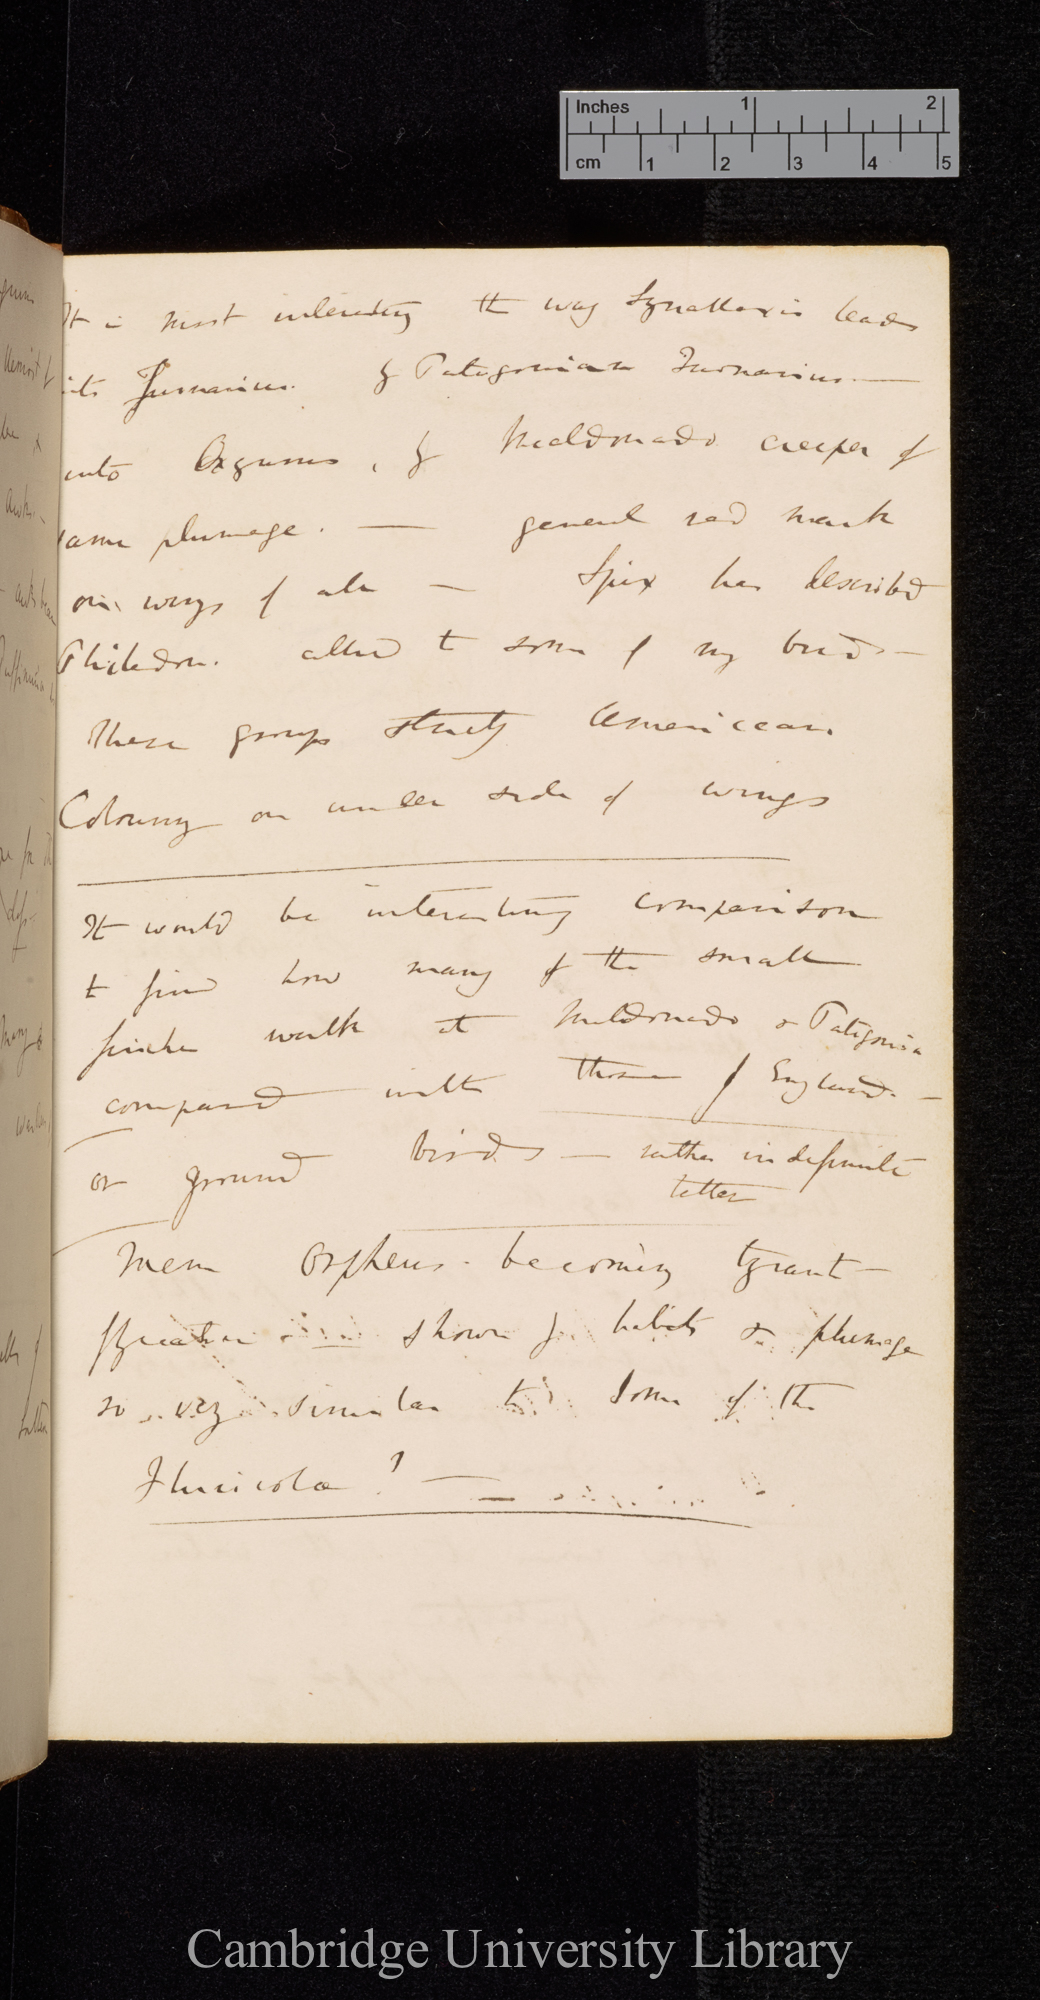 Inches 1 2
cm 1 2 3 4 5
It is most interesting the way Synallaxis leads
into Furnarius. & Patagonian Furnarius.—
into Oxyurus, & Maldonado creeper of
same plumage. — general red mark
on wings of all — Spix has described
Philedon. allied to some of my birds —
These groups strictly American
Colouring on under side of wings
It would be interesting comparison
to find how many of the small
finches walk at Maldonado & Patagonia
compared with those of England. —
or ground birds — rather indefinite
latter
Mem Orpheus. becoming tyrant—
flycatcher shown by habits & plumage
so very similar to some of the
Fluvicola? —
Cambridge University Library